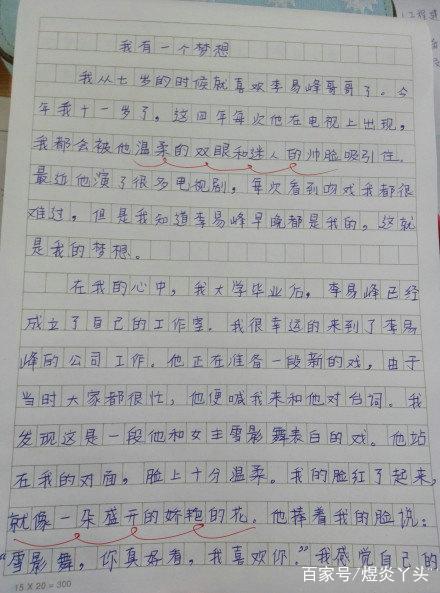 我有一个梦想
我从七岁的时候就喜欢李易峰哥哥了。今
年我十一岁了，这四年每次他在电视上出现，
我都会被他温柔的双眼和迷人的帅脸吸引住。
最近他演了很多电视剧，每次看到吻戏我都很
难过，但是我知道李易峰早晚都是我的，这就
是我的梦想。
在我的心中，我大学毕业后，李易峰已经
成立了自己的工作室。我很幸运的来到了李易
峰的公司工作。他正在准备一段新的戏，由于
当时大家都很忙，他便喊我来和他对台词。我
发现这是一段他和女主雪影舞表白的戏。他站
在我的对面，脸上十分温柔。我的脸红了起来，
就像一朵盛开的娇艳的花。他捧着我的脸说：
“雪影舞，你真好看，我喜欢你。”我感觉自己的
15×20=300
百家号/煜炎丫头